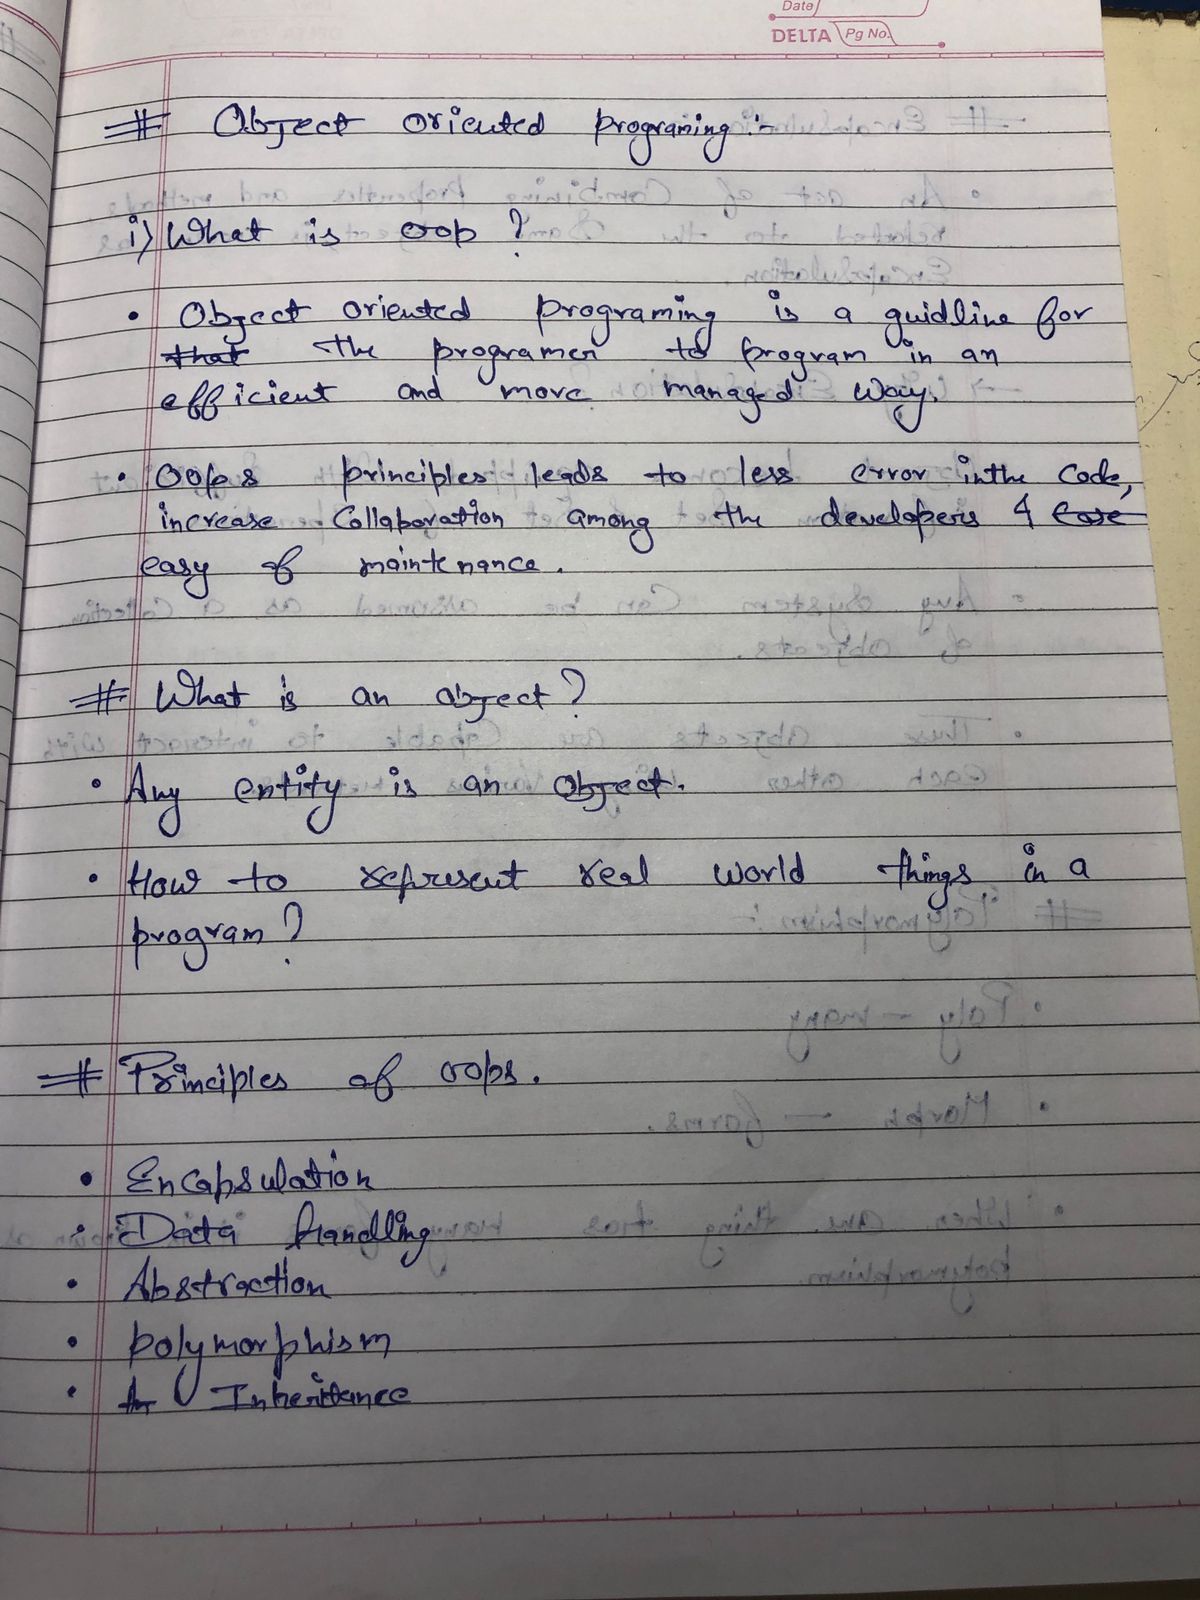 Date
DELTA Pg No.
# Object oriented programing :-
i) What is oop ?
• Object oriented programing is a guidline for
that the programer to program in an
efficient and more managed way.
• Oops principles leads to less error in the Code,
increase Collaboration among the developers & Ease
easy of maintenance.
# What is an object ?
• Any entity is an object.
• How to represent real world things in a
program ?
# Principles of oops.
• Encapsulation
• Data Handling
• Abstraction
• polymorphism
• In Inheritance